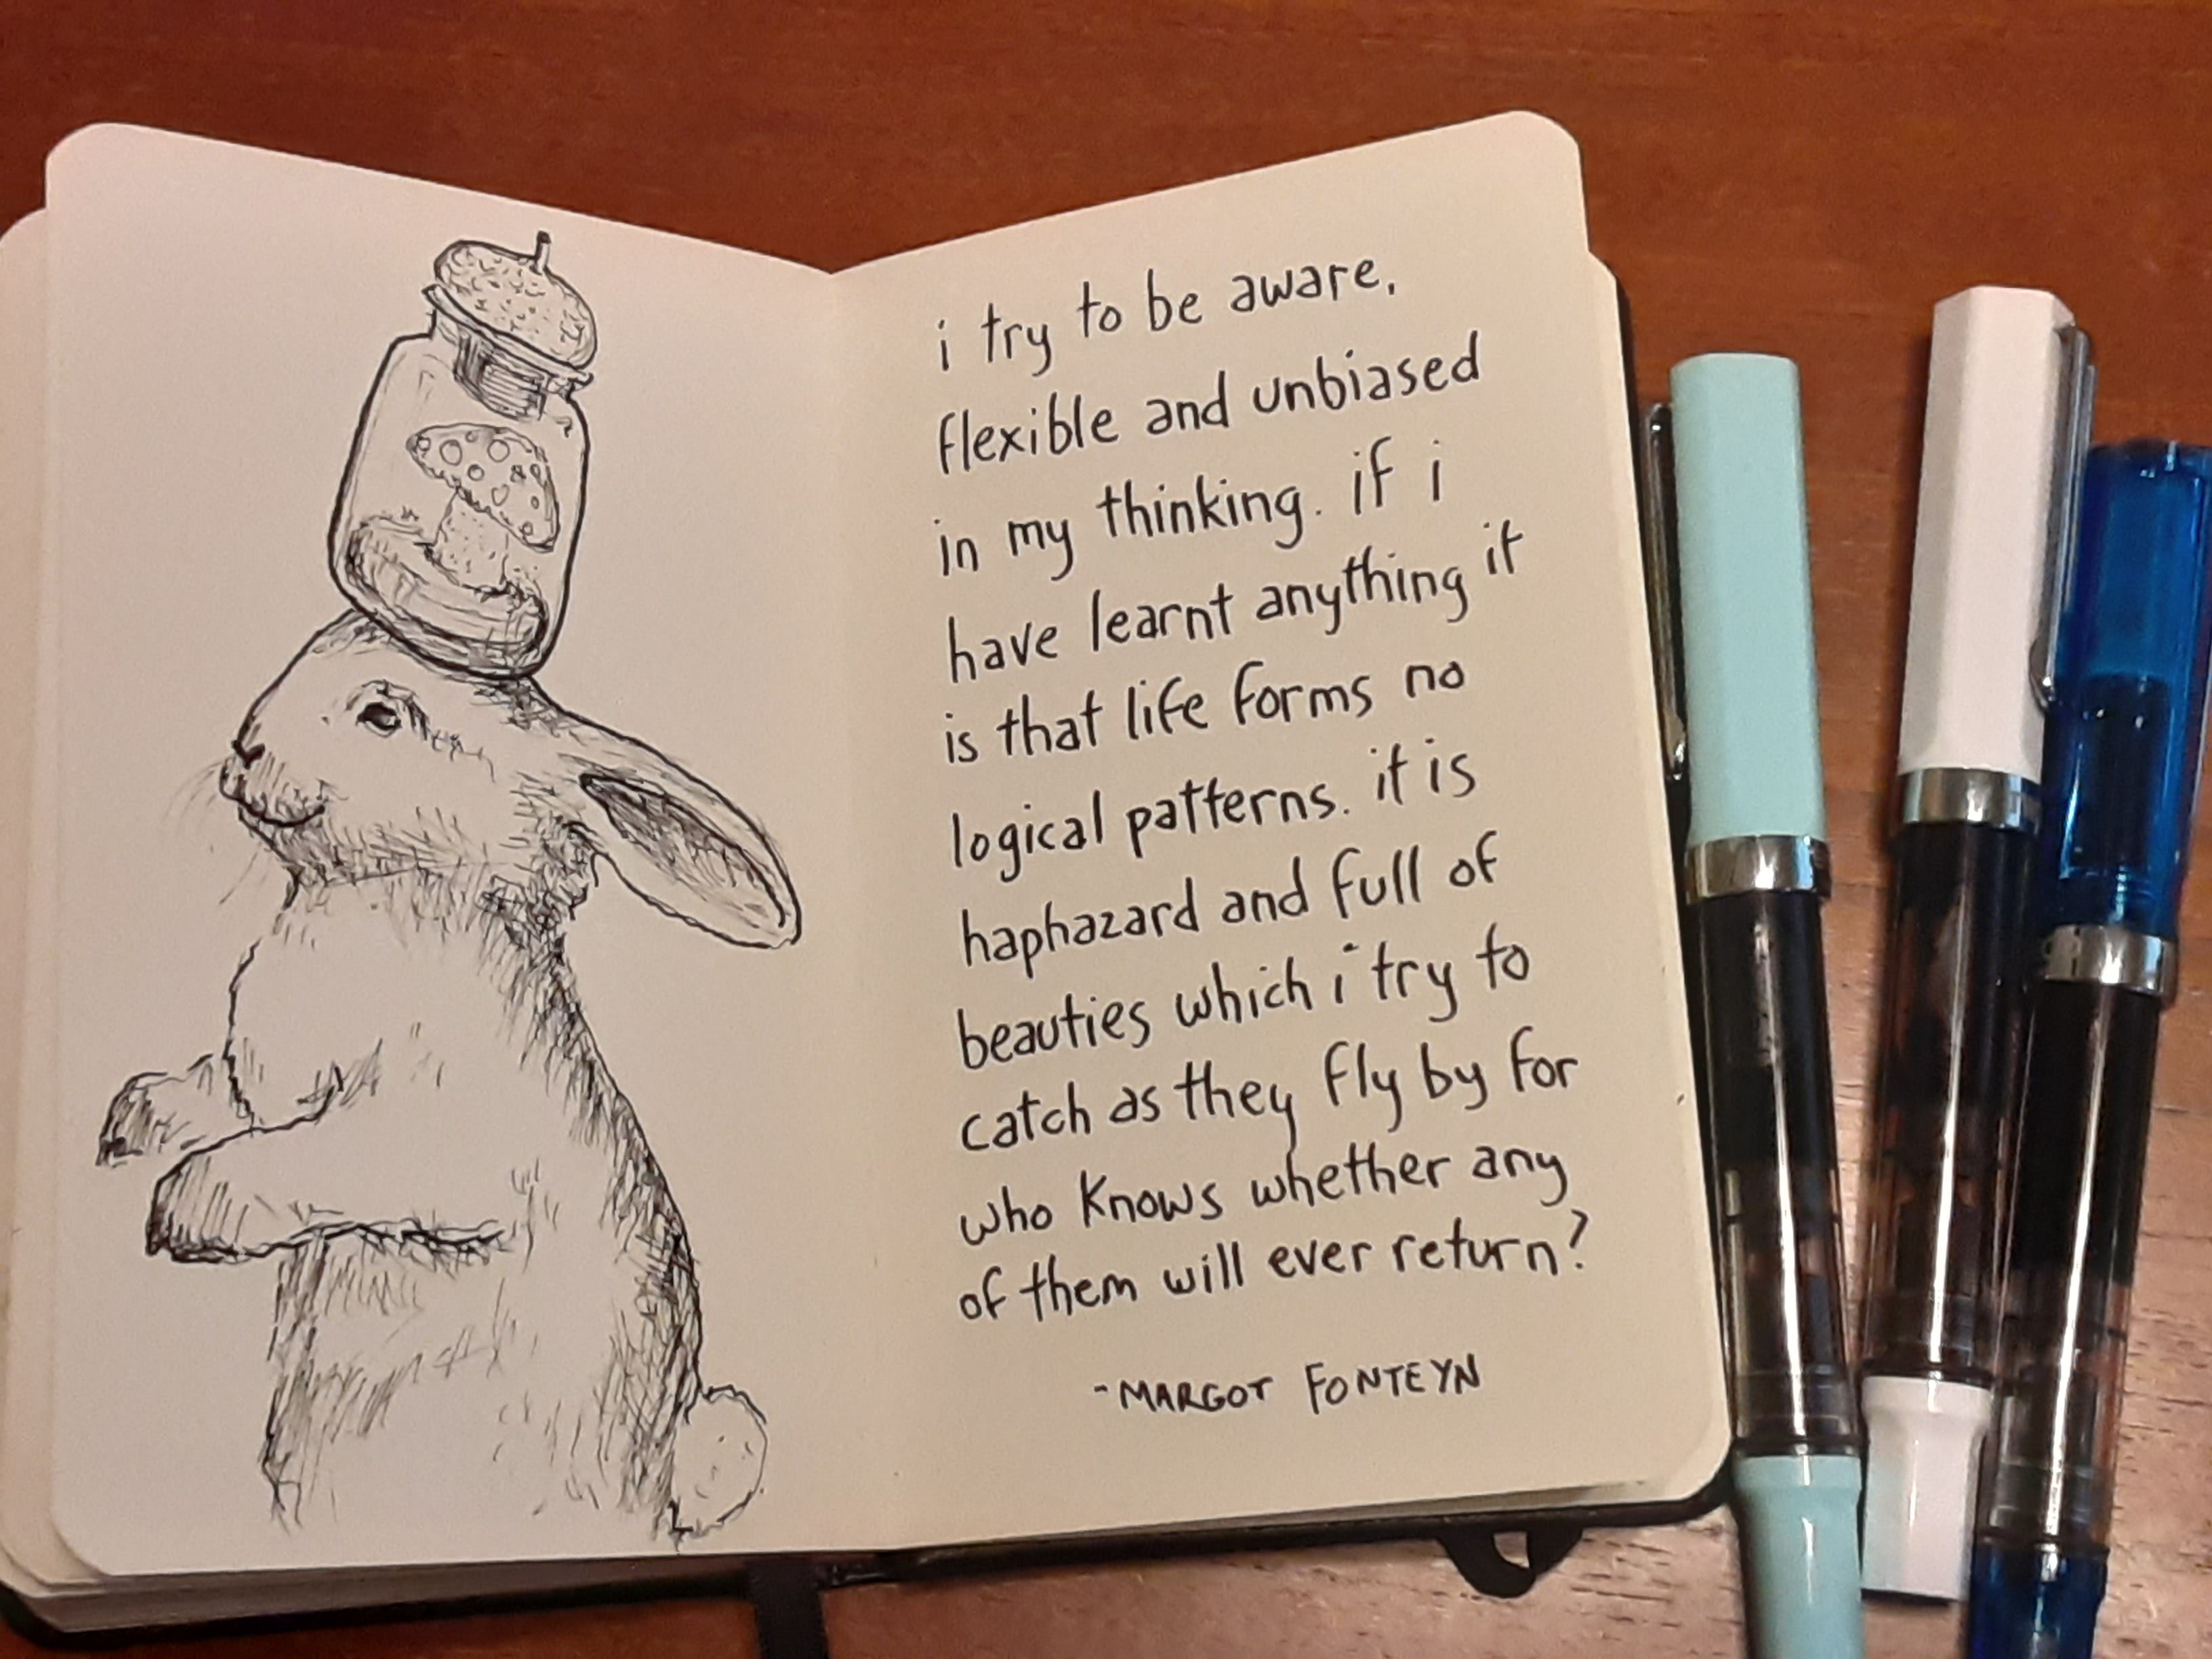 i try to be aware,
flexible and unbiased
in my thinking. if i
have learnt anything it
is that life forms no
logical patterns. it is
haphazard and full of
beauties which i try to
catch as they fly by for
who knows whether any
of them will ever return?
-MARGOT FONTEYN